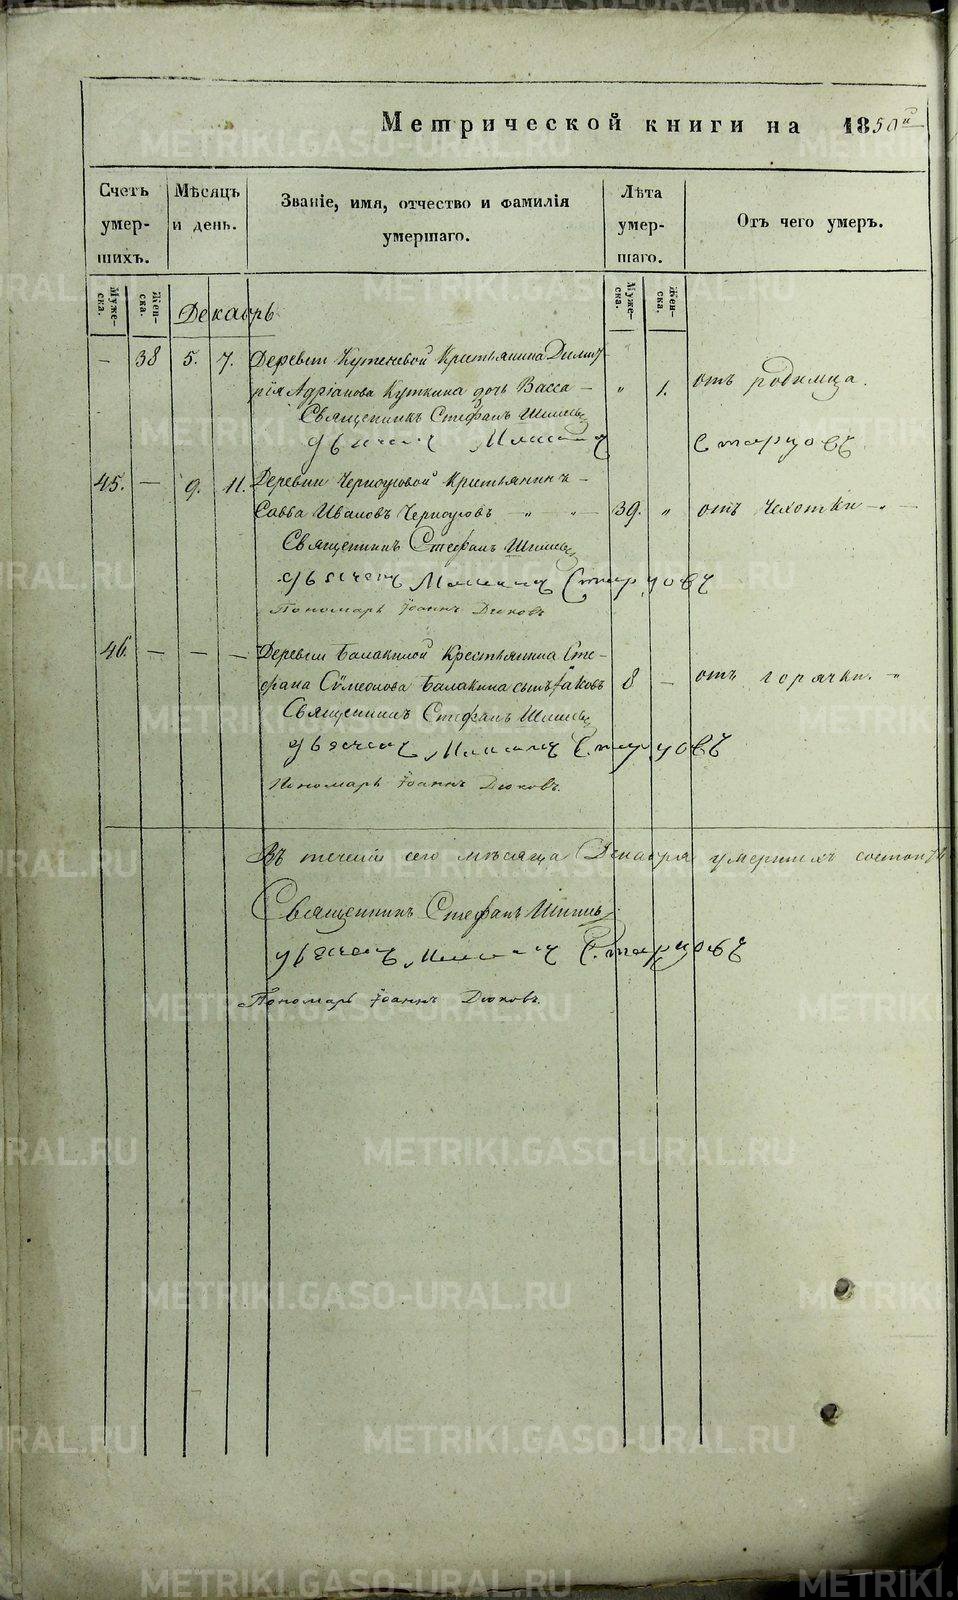 Метрической книги на 1850й
Счетъ умер- шихъ.
Мѣсяцъ и день.
Званіе, имя, отчество и фамилія
умершаго.
Лѣта умер- шаго.
Отъ чего умеръ.
Муже- ска.
Жен- ска.
Декабрь
Муже- ска.
Жен- ска.
— 38 5. 7. Деревни Кутеневой Крестьянина Дмит
рія Адріанова Куткина дочь Васса — „ 1. отъ родимца.
Священникъ Стефанъ
Дьячекъ Старцовъ
45. — 9. 11. Деревни Черноусовой Крестьянинъ —
Савва Ивановъ Черноусовъ — „ — „ — 39. „ отъ чахотки — „ —
Священникъ Стефанъ
Дьячекъ Старцовъ
Пономарь Іоаннъ Дюковъ
46. — — — Деревни Балакиной Крестьянина Сте-
фана Сѵмеонова Балакина сынъ Іаковъ 8 — отъ горячки. — „
Священникъ Стефанъ
Дьячекъ Старцовъ
Пономарь Іоаннъ Дюковъ.
Въ теченіи сего мѣсяца Декабря умершихъ состоитъ
Священникъ Стефанъ
Дьячекъ Старцовъ
Пономарь Іоаннъ Дюковъ.
METRIKI.GASO-URAL.RU